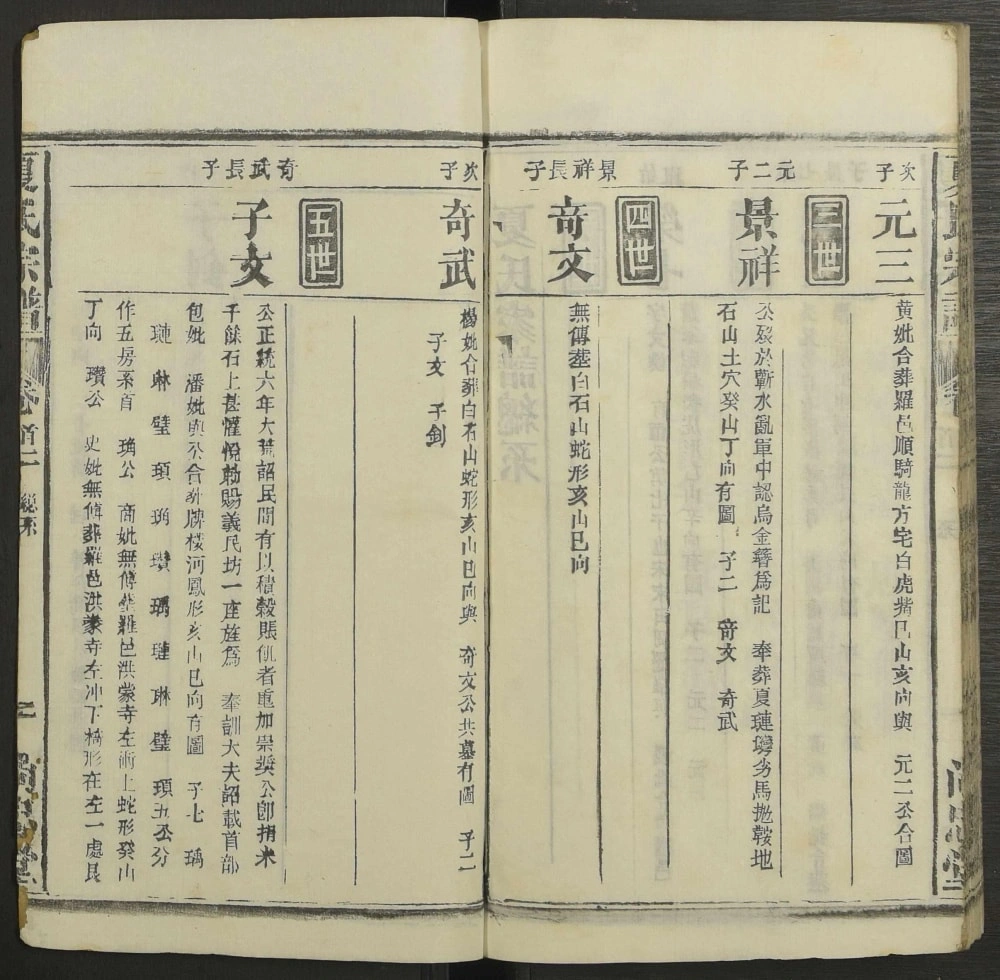 次子
元三
黄妣合葬羅邑順騎龍方宅白虎嘴巳山亥向與 元二公合圖
三世
元二子
景祥
公歿於蘄水亂軍中認烏金簪爲記 奉葬夏璉璧劣馬拋鞍地
石山土穴癸山丁向有圖 子二 竒文 奇武
四世
景祥長子
竒文
無傳塟白石山蛇形亥山巳向
次子
奇武
楊妣合葬白石山蛇形亥山巳向與 奇文公共墓有圖 子二
子文 子釗
五世
奇武長子
子文
公正統六年大荒詔民間有以積穀賬飢者重加崇奬公卽捐米
千餘石上甚懽悅勅賜義民坊一座旌爲 奉訓大夫詔載首部
包妣 潘妣與公合葬牌楼河鳳形亥山巳向有圖 子七 瑀
璉 琳 璧 頊 珦 瓚 瑀 璉 琳 璧 頊五公分
作五房系首 珦公 商妣無傳塟羅邑洪蒙寺左術上蛇形癸山
丁向 瓚公 史妣無傳葬羅邑洪蒙寺左冲下橋形在左一處艮
夏氏宗譜
卷首二
總系
二